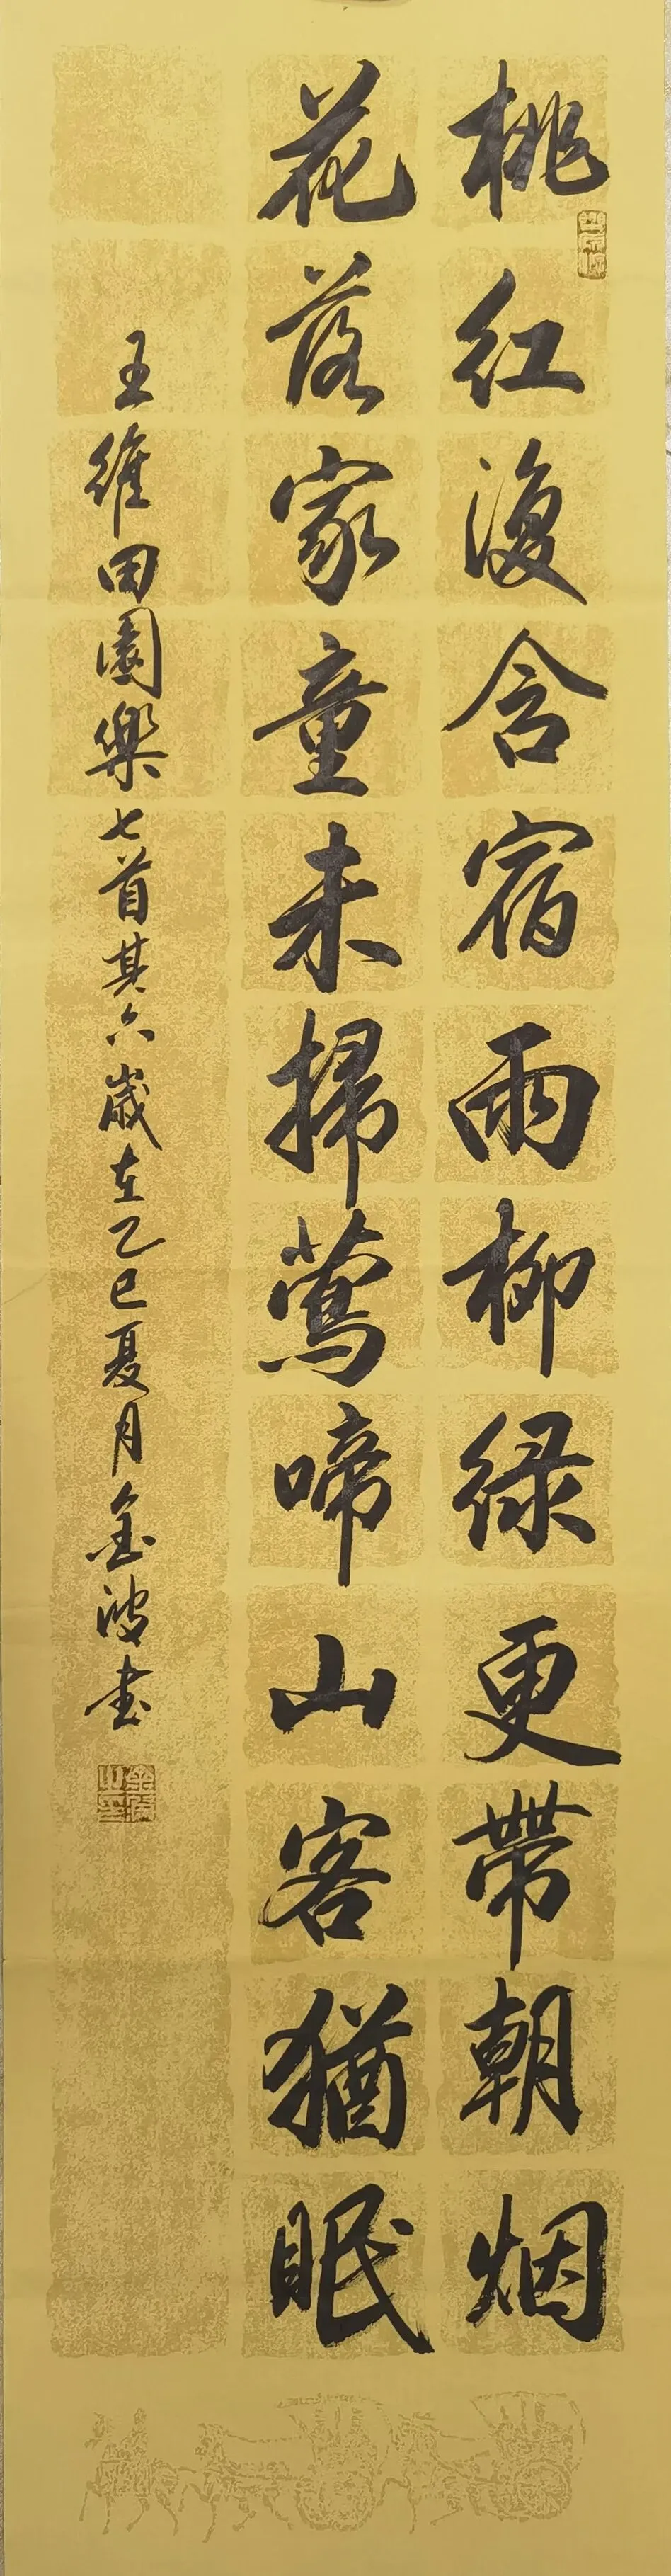 桃红復含宿雨柳绿更帶朝烟
花落家童未掃莺啼山客猶眠
王維田園樂七首其六歲在乙巳夏月金波書